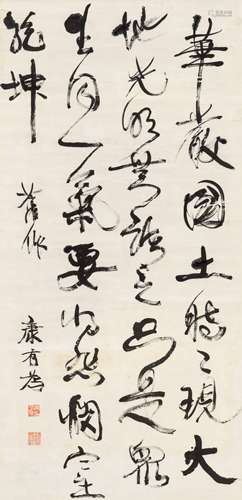 華嚴國土時〻現大
地光明無語言只是眾
生同一氣要以悲憫塞
乾坤
舊作
康有為